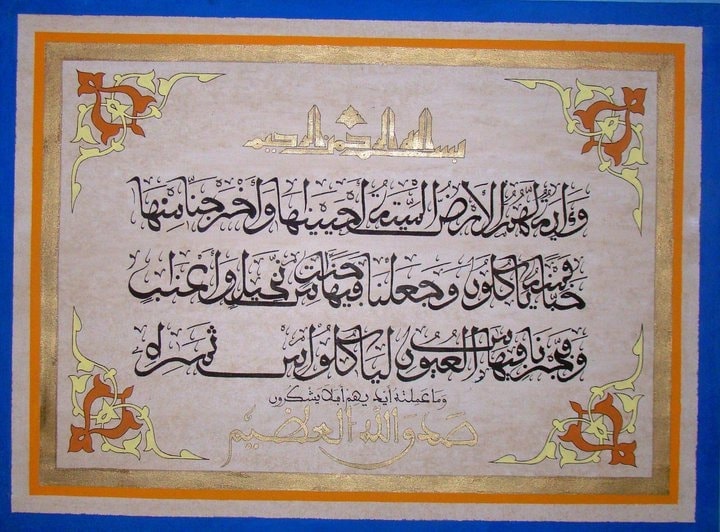 بسم الله الرحمن الرحيم
وءاية لهم الأرض الميتة أحييناها وأخرجنا منها
حبا فمنه يأكلون وجعلنا فيها جنات من نخيل وأعناب
وفجرنا فيها من العيون ليأكلوا من ثمره
وما عملته أيديهم أفلا يشكرون
صدق الله العظيم